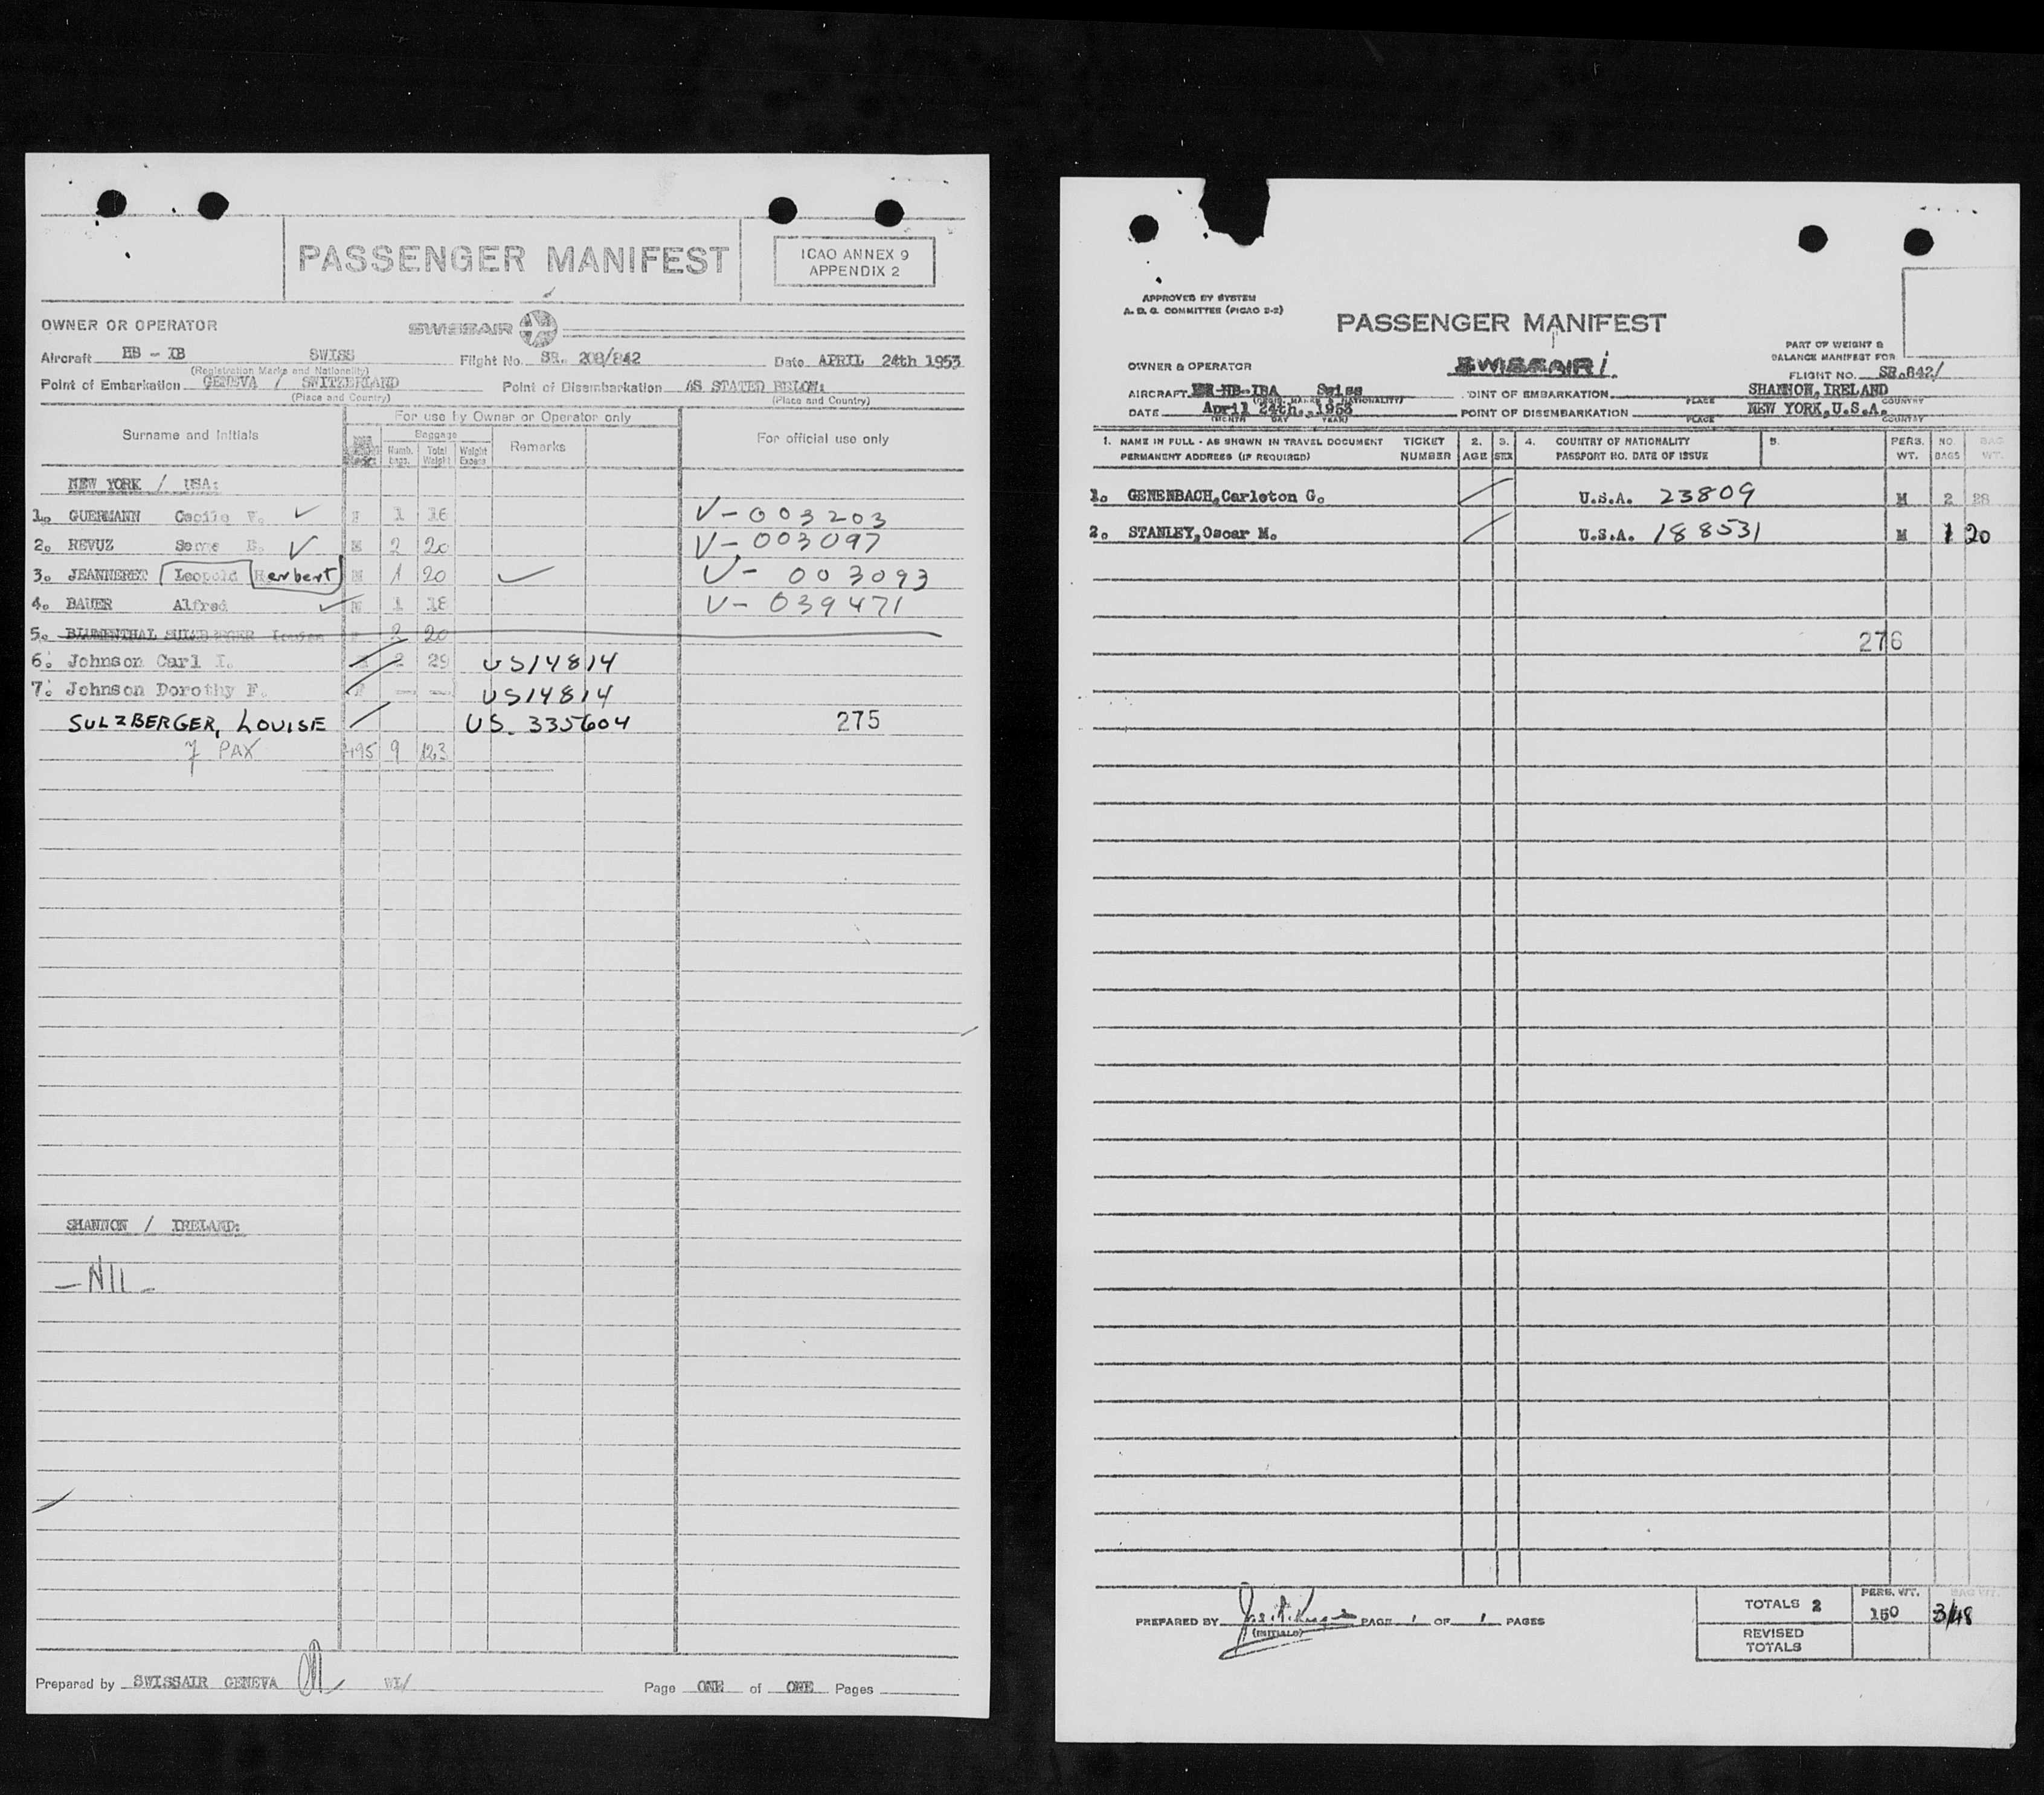 PASSENGER MANIFEST
ICAO ANNEX 9
APPENDIX 2
OWNER OR OPERATOR SWISSAIR
Aircraft HB - IB SWISS Flight No. SR. 208/842 Date APRIL 24th 1953
(Registration Marks and Nationality)
Point of Embarkation GENEVA / SWITZERLAND Point of Disembarkation AS STATED BELOW:
(Place and Country) (Place and Country)
For use by Owner or Operator only
Surname and Initials Baggage Remarks For official use only
Numb. bags. Total Weight Weight Excess
NEW YORK / USA:
1. GUERMANN Cecile V. ✓ F 1 16 V-003203
2. REVUZ Serge E. ✓ M 2 20 V-003097
3. JEANNERET Leopold Herbert M 1 20 ✓ V- 003093
4. BAUER Alfred ✓ M 1 18 V- 039471
5. BLUMENTHAL SULZBERGER Louise F 2 20
6. Johnson Carl I. 2 29 US14814
7. Johnson Dorothy F. F — — US14814
SULZBERGER, LOUISE US. 335604 275
7 PAX 495 9 123
SHANNON / IRELAND:
- NIL -
Prepared by SWISSAIR GENEVA WL/ Page ONE of ONE Pages
APPROVED BY SYSTEM
A. D. G. COMMITTEE (PICAO 2-2)
PASSENGER MANIFEST
PART OF WEIGHT &
BALANCE MANIFEST FOR
OWNER & OPERATOR SWISSAIR
FLIGHT NO. SR.842/
AIRCRAFT HB-IBA Swiss POINT OF EMBARKATION SHANNON, IRELAND
(REGIS. MARKS & NATIONALITY) PLACE COUNTRY
DATE April 24th., 1953 POINT OF DISEMBARKATION NEW YORK, U.S.A.
(MONTH DAY YEAR) PLACE COUNTRY
1. NAME IN FULL - AS SHOWN IN TRAVEL DOCUMENT TICKET 2. 3. 4. COUNTRY OF NATIONALITY 5. PERS. NO. BAG
PERMANENT ADDRESS (IF REQUIRED) NUMBER AGE SEX PASSPORT NO. DATE OF ISSUE WT. BAGS WT.
1. GENENBACH, Carleton G. U.S.A. 23809 M 2 28
2. STANLEY, Oscar M. U.S.A. 188531 M 1 20
276
PREPARED BY PAGE 1 OF 1 PAGES
(INITIALS)
PERS. WT. BAG WT.
TOTALS 2 150 3/48
REVISED
TOTALS